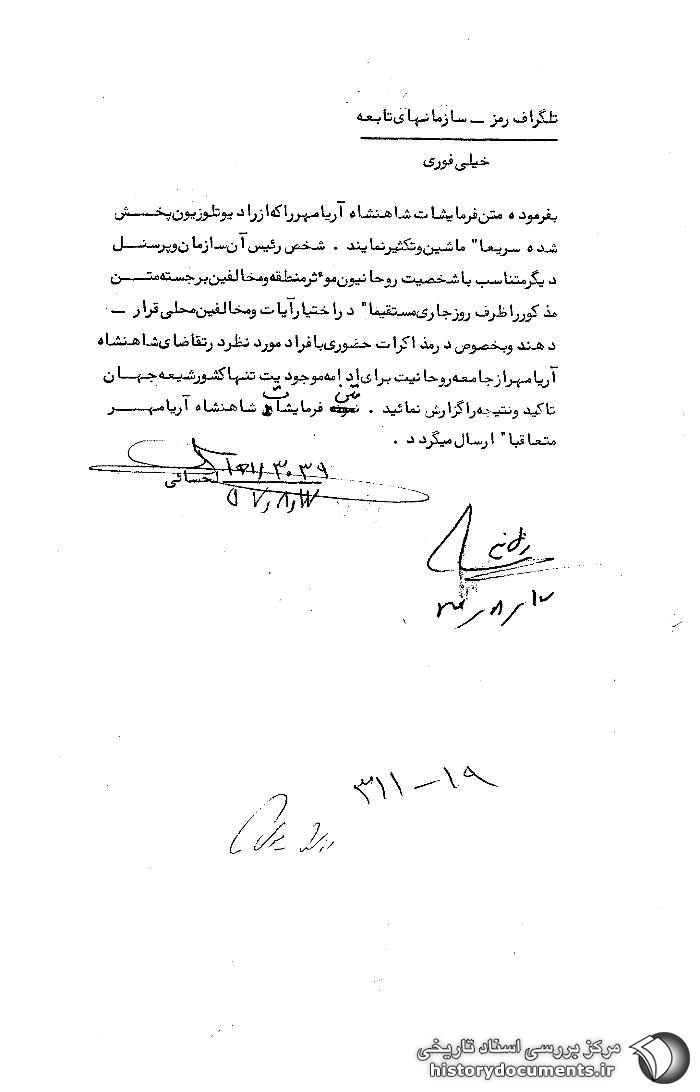 تلگراف رمز ــ سازمانهای تابعه
خیلی فوری
بفرموده متن فرمایشات شاهنشاه آریامهر را که از رادیو تلوزیون پخش
شده سریعا" ماشین و تکثیر نمایند . شخص رئیس آن سازمان و پرسنل
دیگر متناسب با شخصیت روحانیون موءثر منطقه و مخالفین برجسته متن
مذکور را ظرف روز جاری مستقیما" در اختیار آیات و مخالفین محلی قرار ــ
دهند و بخصوص در مذاکرات حضوری با افراد مورد نظر در تقاضای شاهنشاه
آریامهر از جامعه روحانیت برای ادامه موجودیت تنها کشور شیعه جهان
تاکید و نتیجه را گزارش نمائید . متن فرمایشات شاهنشاه آریامهر
متعاقبا" ارسال میگردد .
احسائی
۵۷٫۸٫۱۷
۳۱۱−۱۹
مرکز بررسی اسناد تاریخی
historydocuments.ir